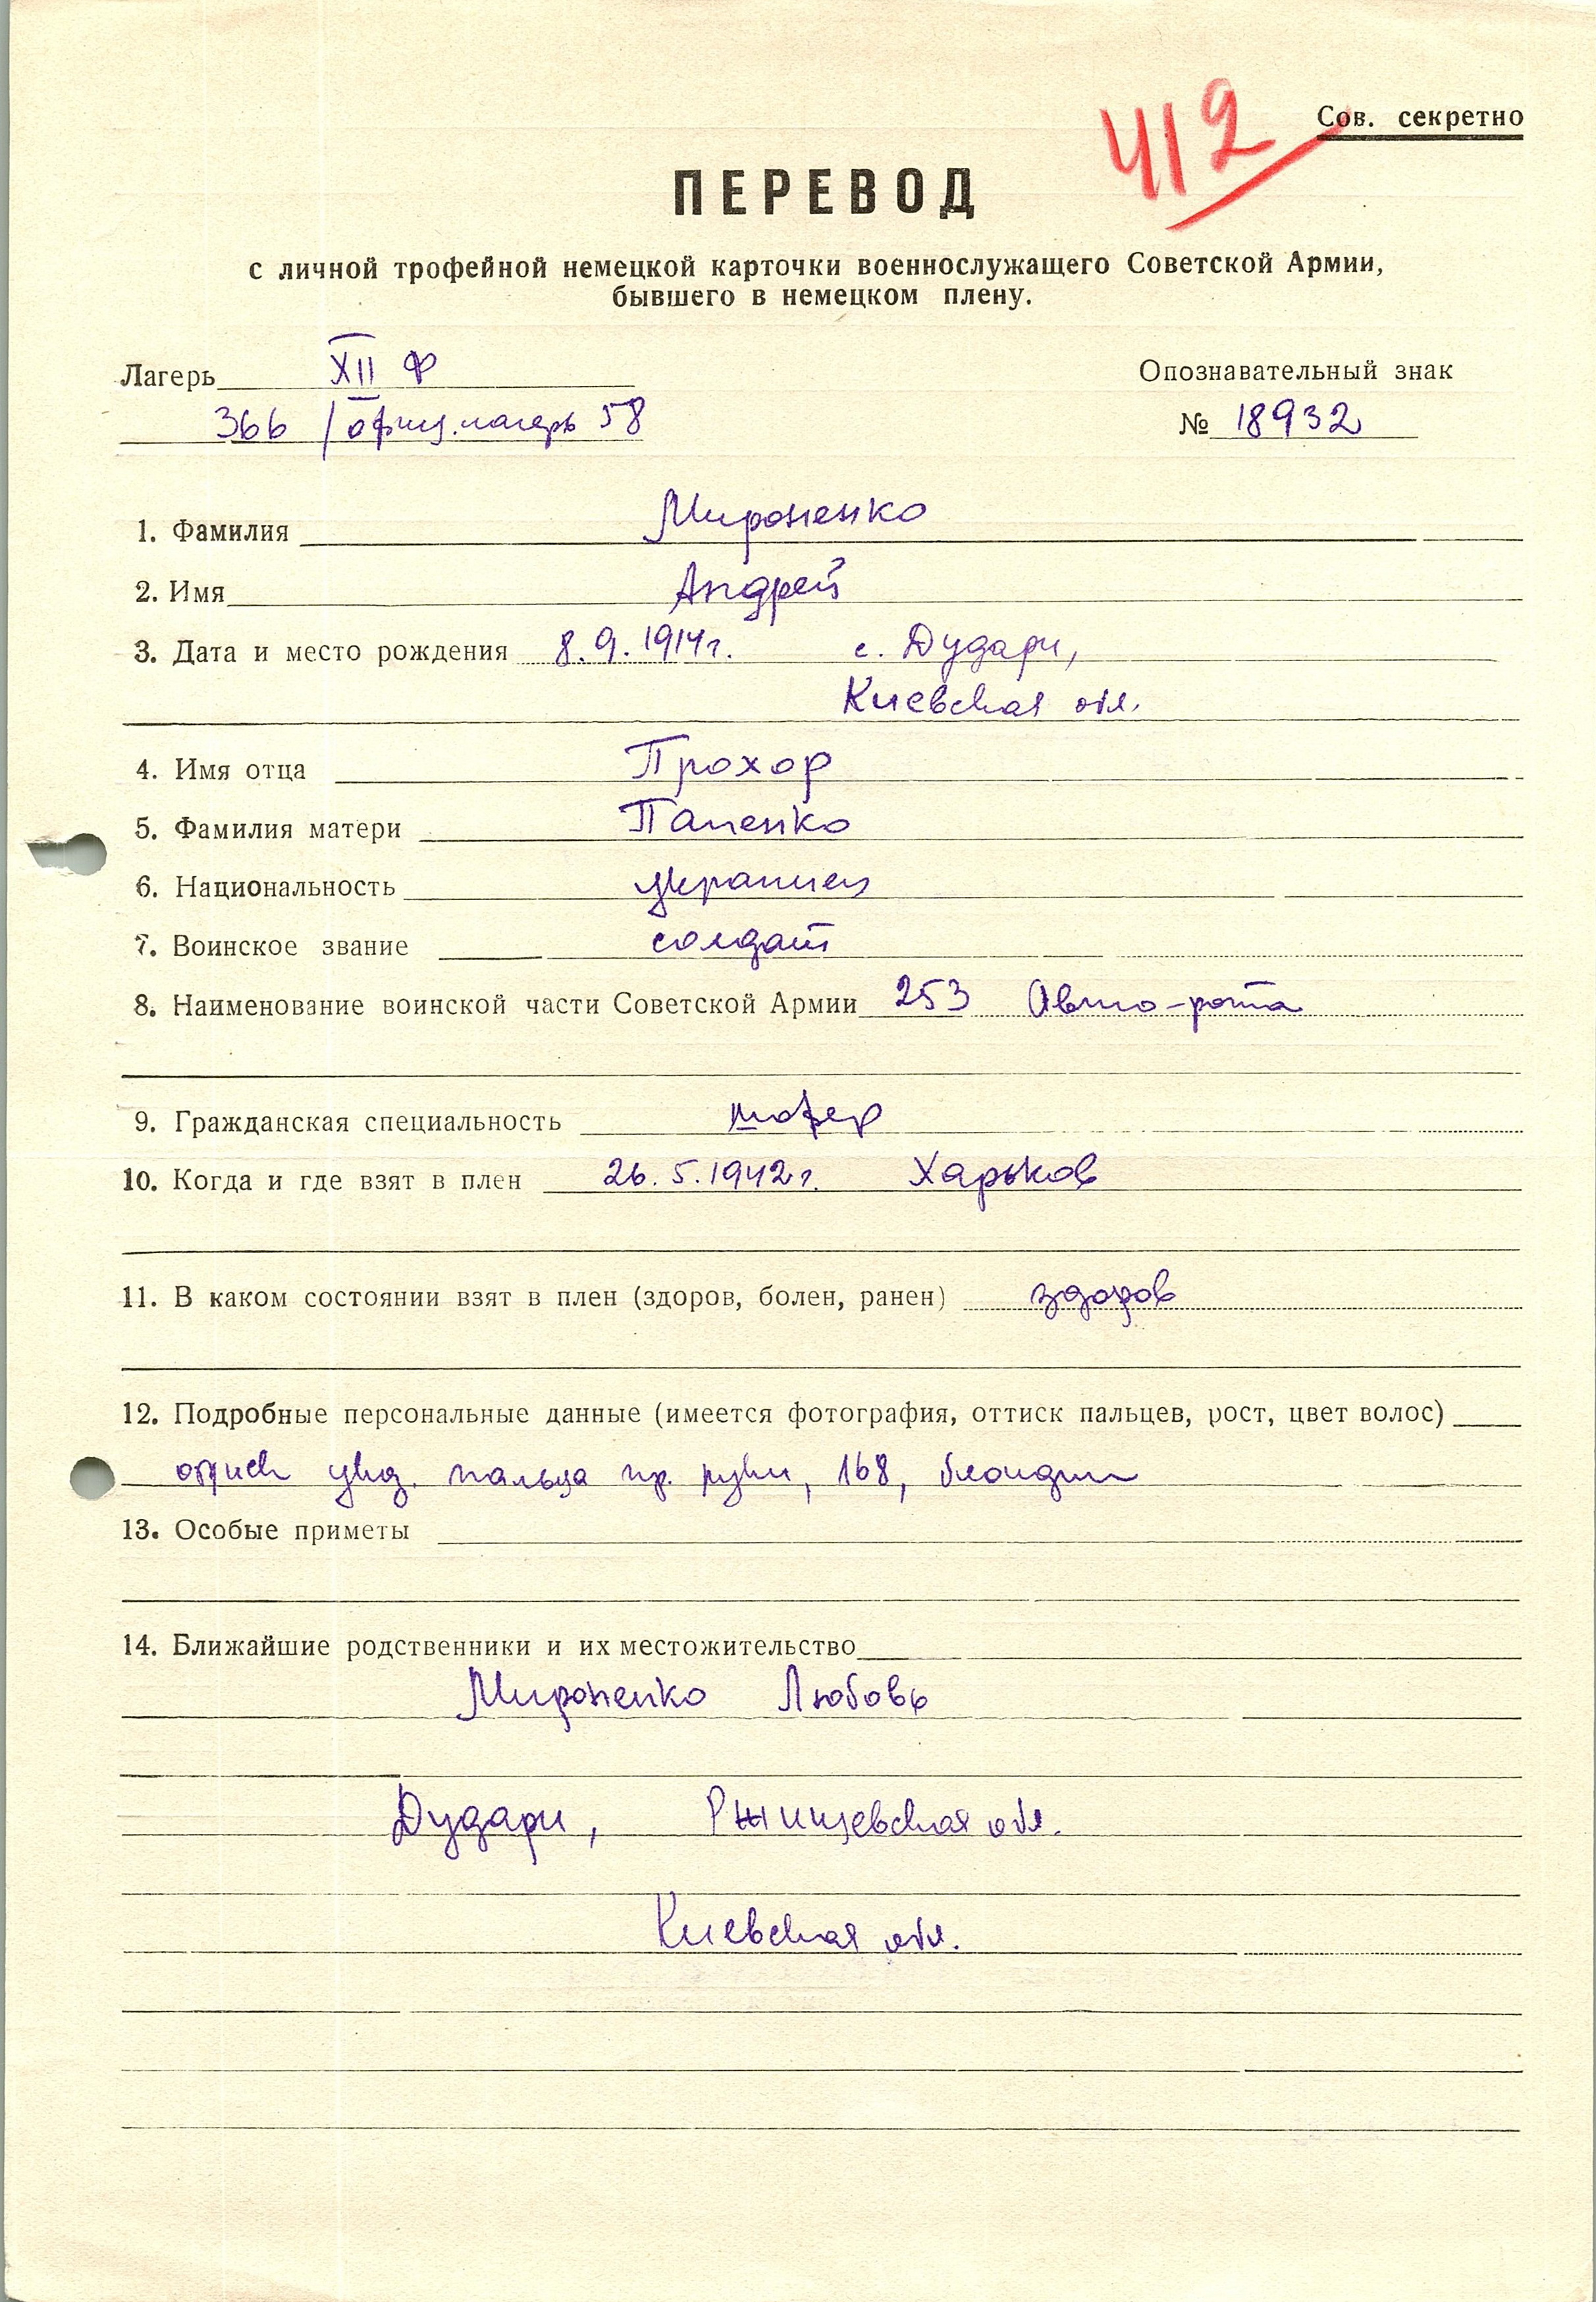 412
Сов. секретно
ПЕРЕВОД
с личной трофейной немецкой карточки военнослужащего Советской Армии,
бывшего в немецком плену.
Лагерь XII Ф Опознавательный знак
366 / офиц. лагерь 58 № 18932
1. Фамилия Мироненко
2. Имя Андрей
3. Дата и место рождения 8.9.1914г. с. Дудари,
Киевская обл.
4. Имя отца Прохор
5. Фамилия матери Папенко
6. Национальность украинец
7. Воинское звание солдат
8. Наименование воинской части Советской Армии 253 Авто-рота
9. Гражданская специальность шофер
10. Когда и где взят в плен 26.5.1942г. Харьков
11. В каком состоянии взят в плен (здоров, болен, ранен) здоров
12. Подробные персональные данные (имеется фотография, оттиск пальцев, рост, цвет волос)
оттиск указ. пальца пр. руки, 168, блондин
13. Особые приметы
14. Ближайшие родственники и их местожительство
Мироненко Любовь
Дудари, Ржищевская обл.
Киевская обл.